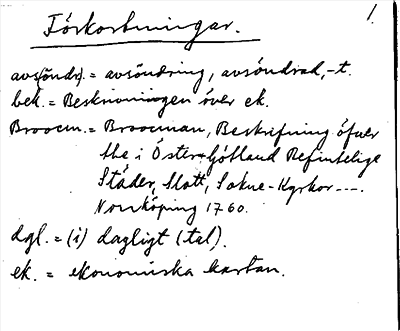 1.
Förkortningar.
avsöndr. = avsöndring, avsöndrad, -t.
bek. = Beskrivningen över ek.
Broocm. = Broocman, Beskrifning öfwer
the i Öster-Götland Befintelige
Städer, Slott, Sokne-Kyrkor ----.
Norrköping 1760.
dgl. = (i) dagligt (tal).
ek. = ekonomiska kartan.